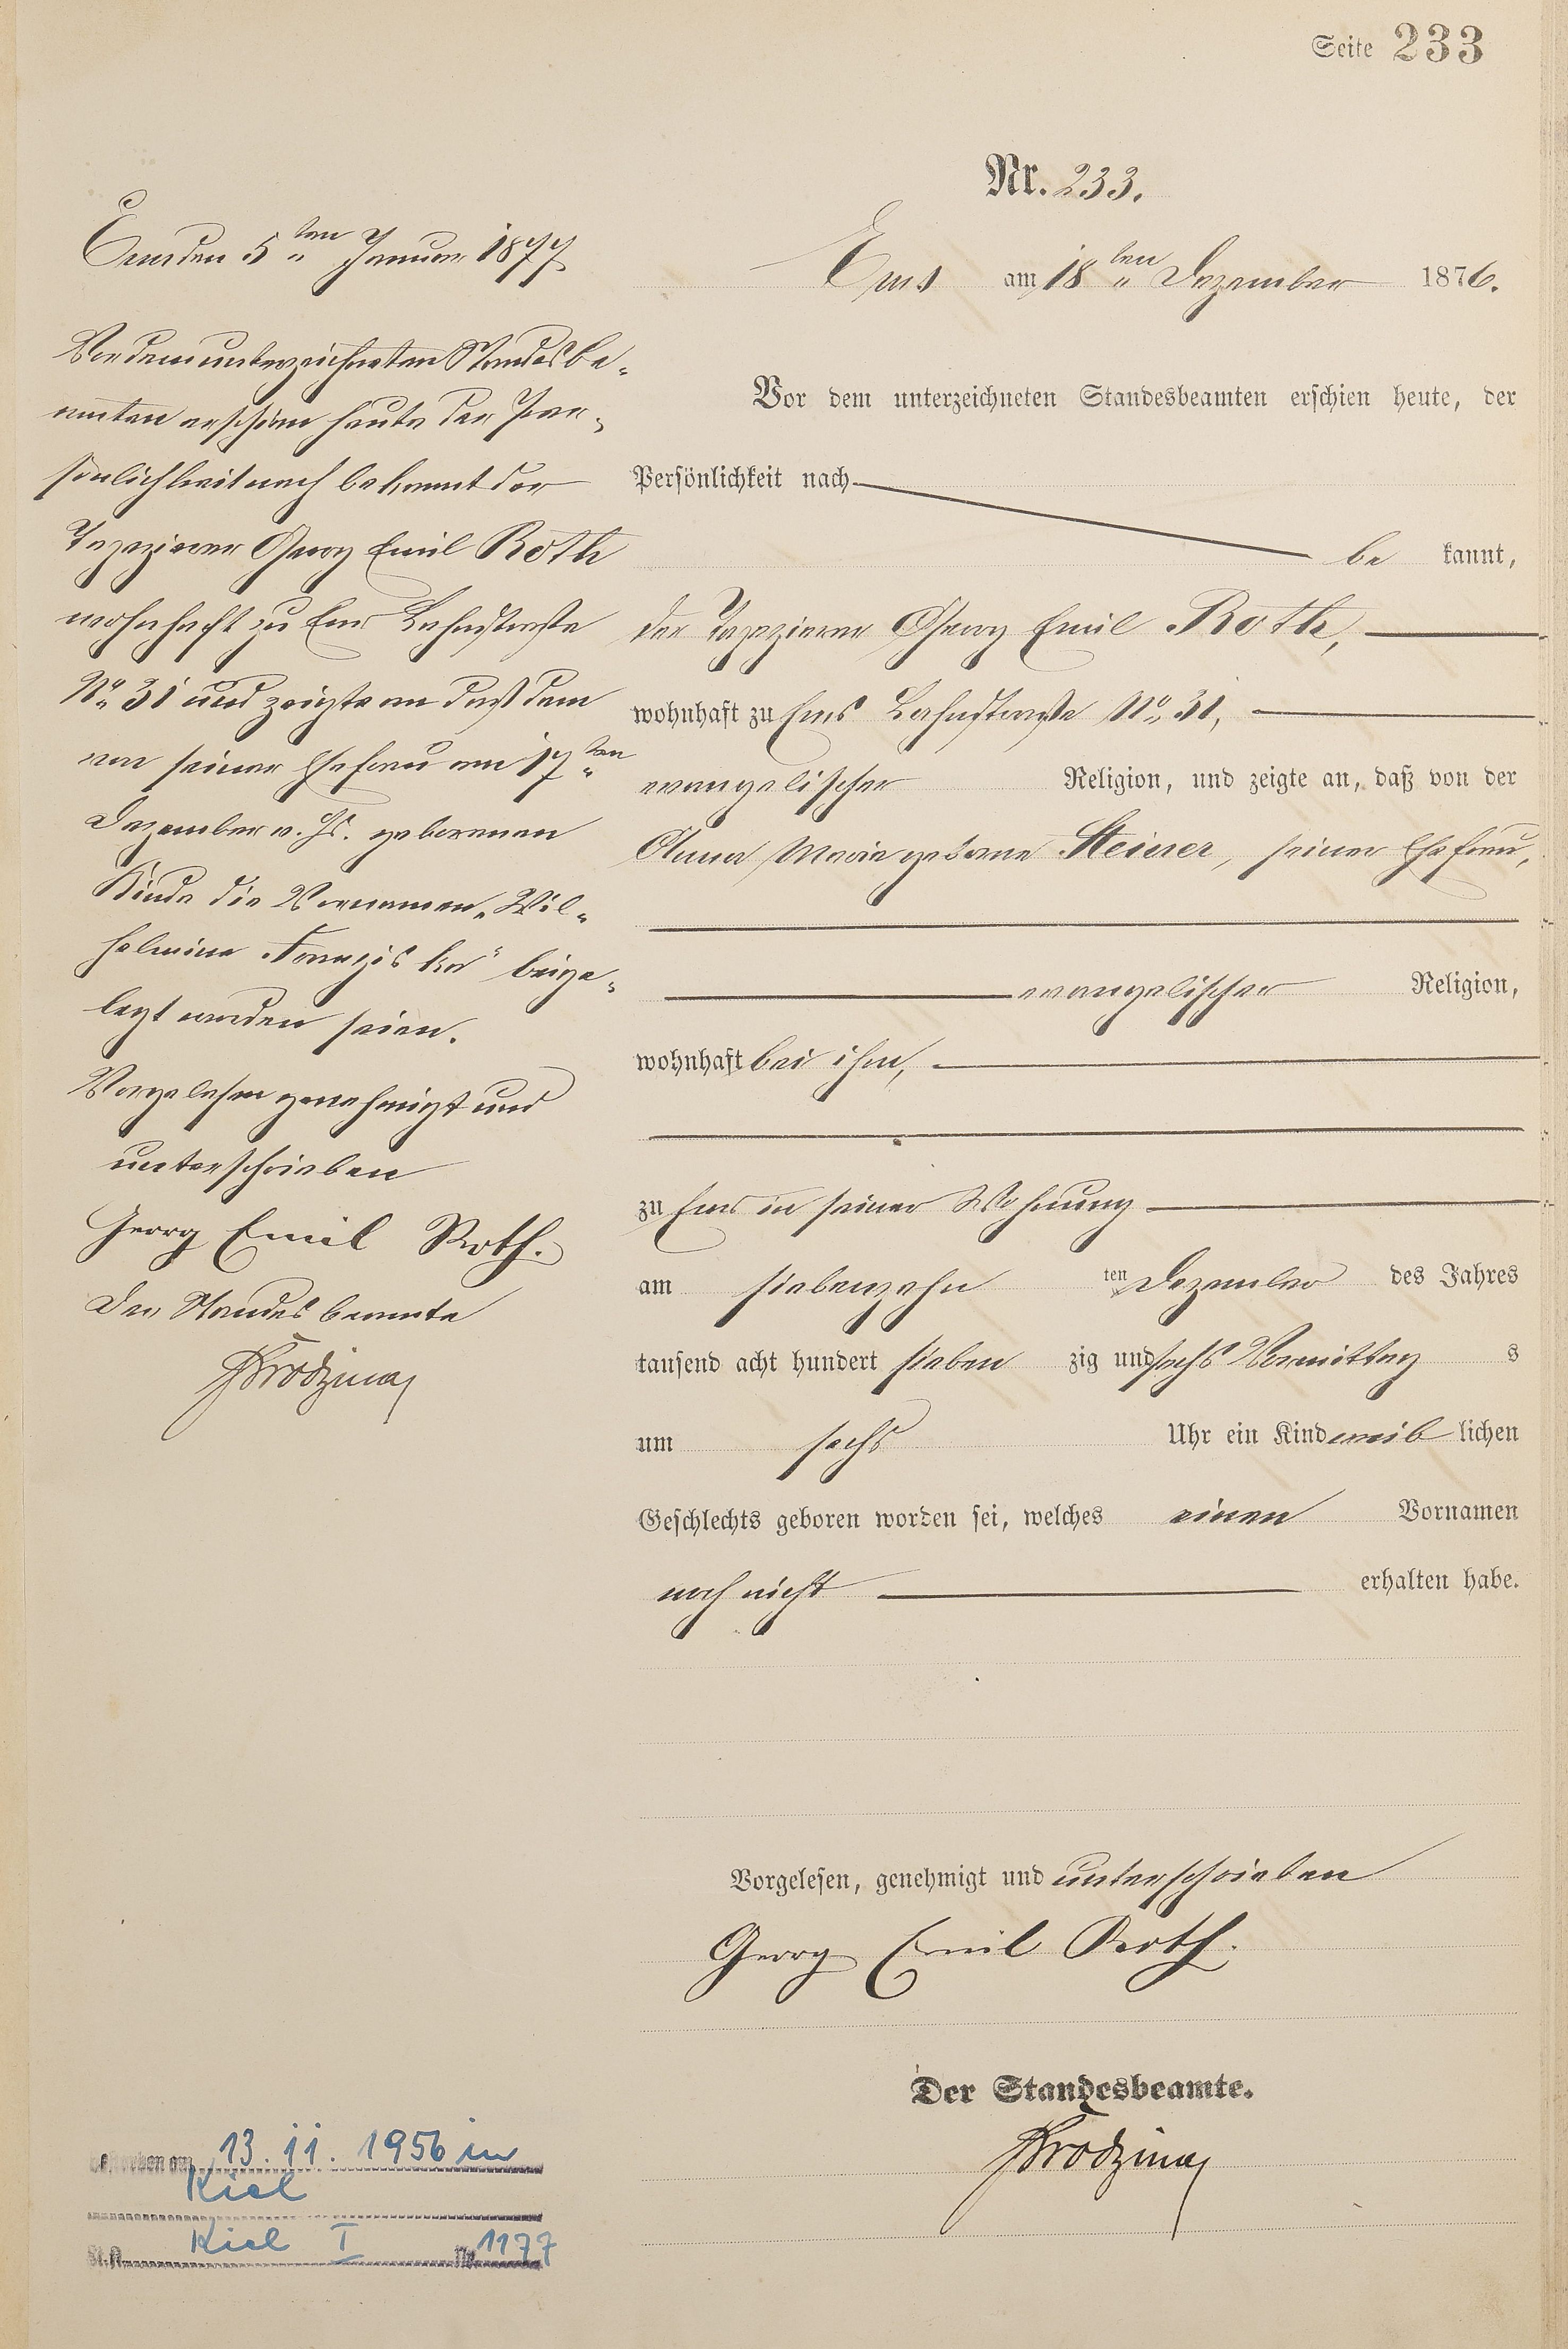 Seite 233
Nr. 233.
Ems am 18ten Dezember 1876.
Vor dem unterzeichneten Standesbeamten erschien heute, der
Persönlichkeit nach
be kannt,
der Tapezierer Georg Emil Roth,
wohnhaft zu Ems Lahnstraße No 31,
evangelischer Religion, und zeigte an, daß von der
Anna Maria geborne Steiner, seiner Ehefrau,
evangelischer Religion,
wohnhaft bei ihm,
zu Ems in seiner Wohnung
am siebenzehn ten Dezember des Jahres
tausend acht hundert sieben zig und sechs Vormittag s
um sechs Uhr ein Kind weib lichen
Geschlechts geboren worden sei, welches einen Vornamen
noch nicht erhalten habe.
Vorgelesen, genehmigt und unterschrieben
Georg Emil Roth.
Der Standesbeamte.
Ems den 5ten Januar 1877
Vor dem unterzeichneten Standesbe-
amten erschien heute der Per-
sönlichkeit nach bekannt der
Tapezierer Georg Emil Roth
wohnhaft zu Ems Lahnstraße
No 31 und zeigte an daß dem
von seiner Ehefrau am 17ten
Dezember v. Js. geborenen
Kinde die Vornamen „Wil-
helmine Franziska“ beige-
legt worden seien.
Vorgelesen genehmigt und
unterschrieben
Georg Emil Roth.
Der Standesbeamte
gestorben am 13.11.1956 in
Kiel
St.A. Kiel I Nr. 1177